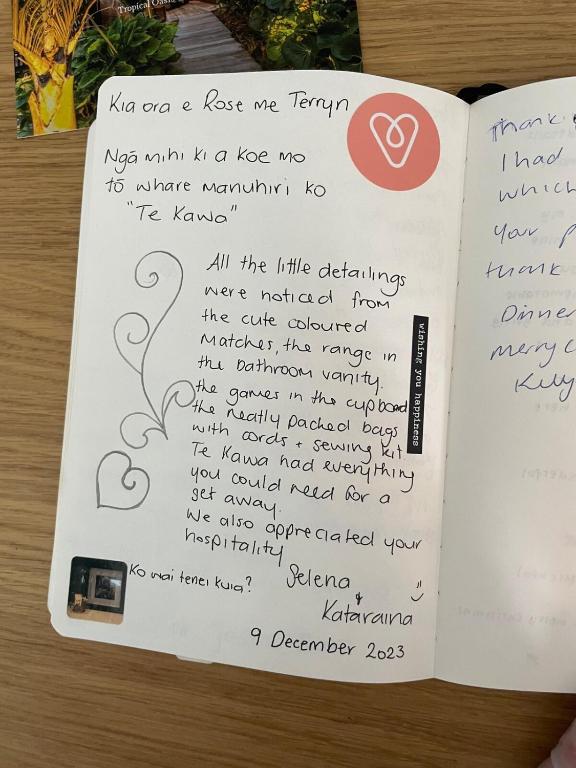 Tropical Oasis
Kia ora e Rose me Terryn
Ngā mihi ki a koe mo
tō whare manuhiri ko
"Te Kawa"
All the little detailings
were noticed from
the cute coloured
Matches, the range in
the bathroom vanity.
the games in the cupboard
the neatly packed bags
with cords + sewing kit.
Te Kawa had everything
you could need for a
get away.
We also appreciated your
hospitality
wishing you happiness
Ko wai tenei kuia?
Selena
+
Kataraina
9 December 2023
Thank
I had
which
your
thank
Dinner
merry
Kelly